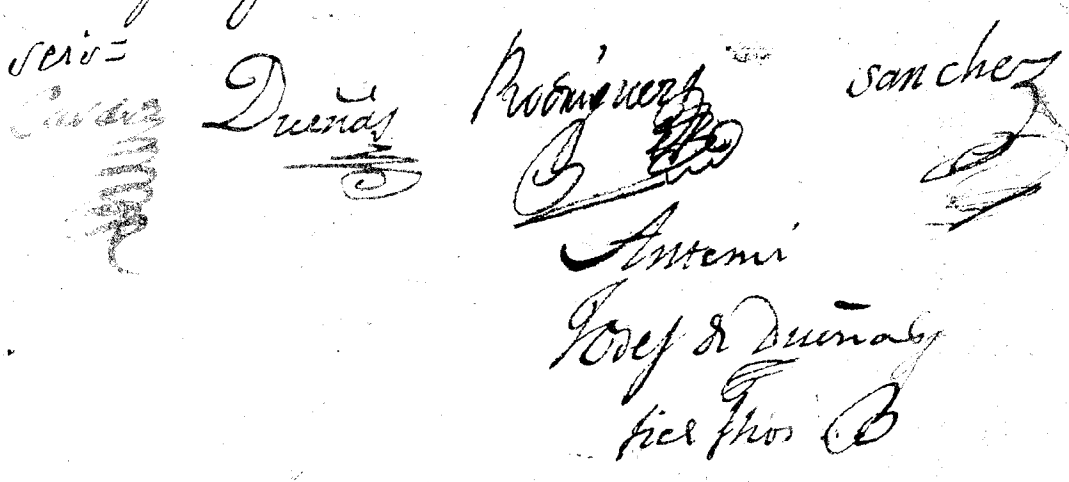 seis=
Dueñas Rodriguez Sanchez
Antemi
Josef de Dueñas
fiel fhos